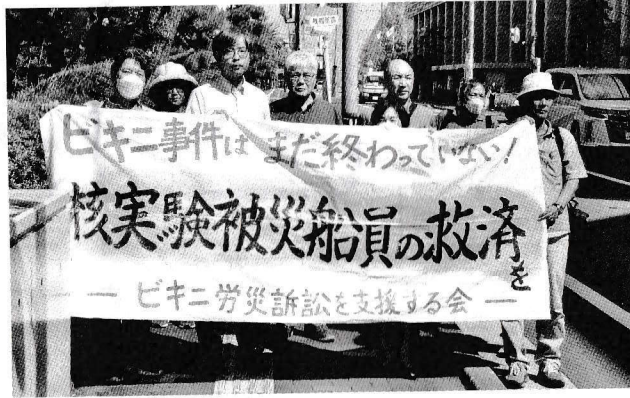 ビキニ事件は まだ終わっていない!
核実験被災船員の救済を
― ビキニ労災訴訟を支援する会 ―